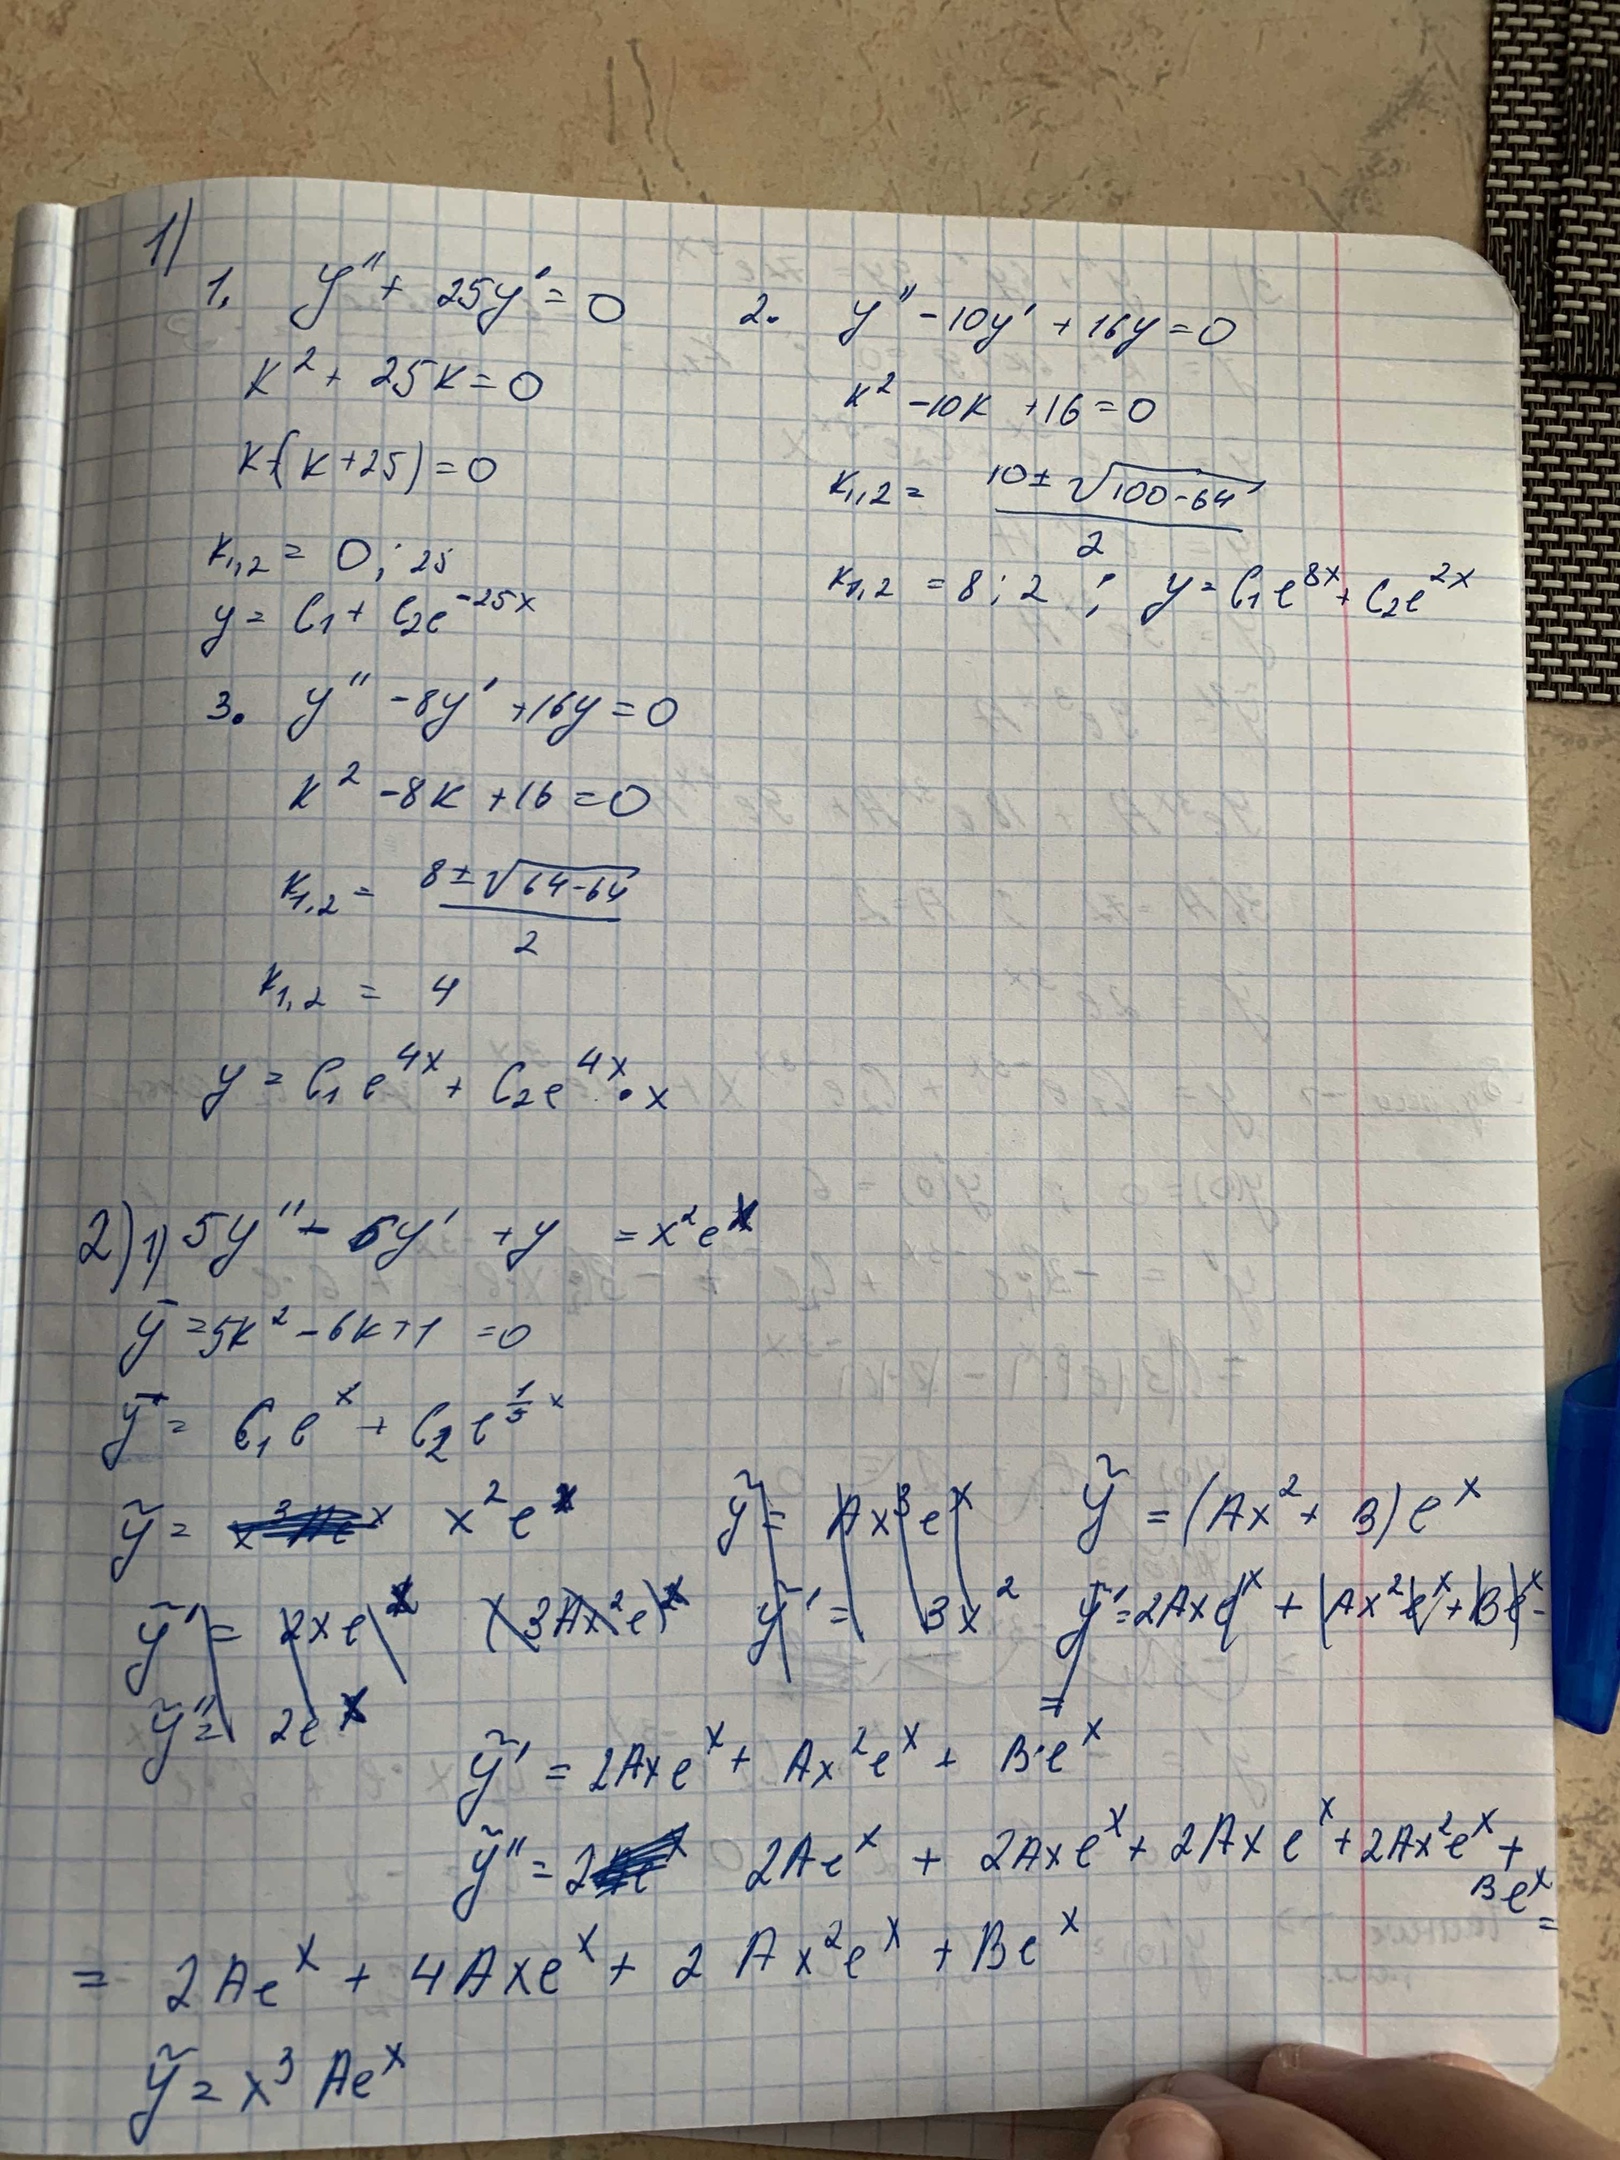 1)
1. y'' + 25y' = 0
k² + 25k = 0
k·(k+25) = 0
k₁,₂ = 0; 25
y = C₁ + C₂e^{-25x}
2. y'' - 10y' + 16y = 0
k² - 10k + 16 = 0
k₁,₂ = (10 ± √(100-64)) / 2
k₁,₂ = 8; 2 ; y = C₁e^{8x} + C₂e^{2x}
3. y'' - 8y' + 16y = 0
k² - 8k + 16 = 0
k₁,₂ = (8 ± √(64-64)) / 2
k₁,₂ = 4
y = C₁e^{4x} + C₂e^{4x}·x
2) 1) 5y'' - 6y' + y = x²e^x
ȳ = 5k² - 6k + 1 = 0
ȳ = C₁e^x + C₂e^{1/5 x}
ỹ = x²e^x
ỹ' = 2xe^x (3Ax²e)^x
ỹ'' = 2e^x
ỹ = Ax³e^x
ỹ' = 3x²
ỹ = (Ax² + B)e^x
ỹ' = 2Axe^x + Ax²e^x + Be^x =
=
ỹ' = 2Axe^x + Ax²e^x + B·e^x
ỹ'' = 2 2Ae^x + 2Axe^x + 2Axe^x + 2Ax²e^x + Be^x =
= 2Ae^x + 4Axe^x + 2Ax²e^x + Be^x
ỹ = x³Ae^x